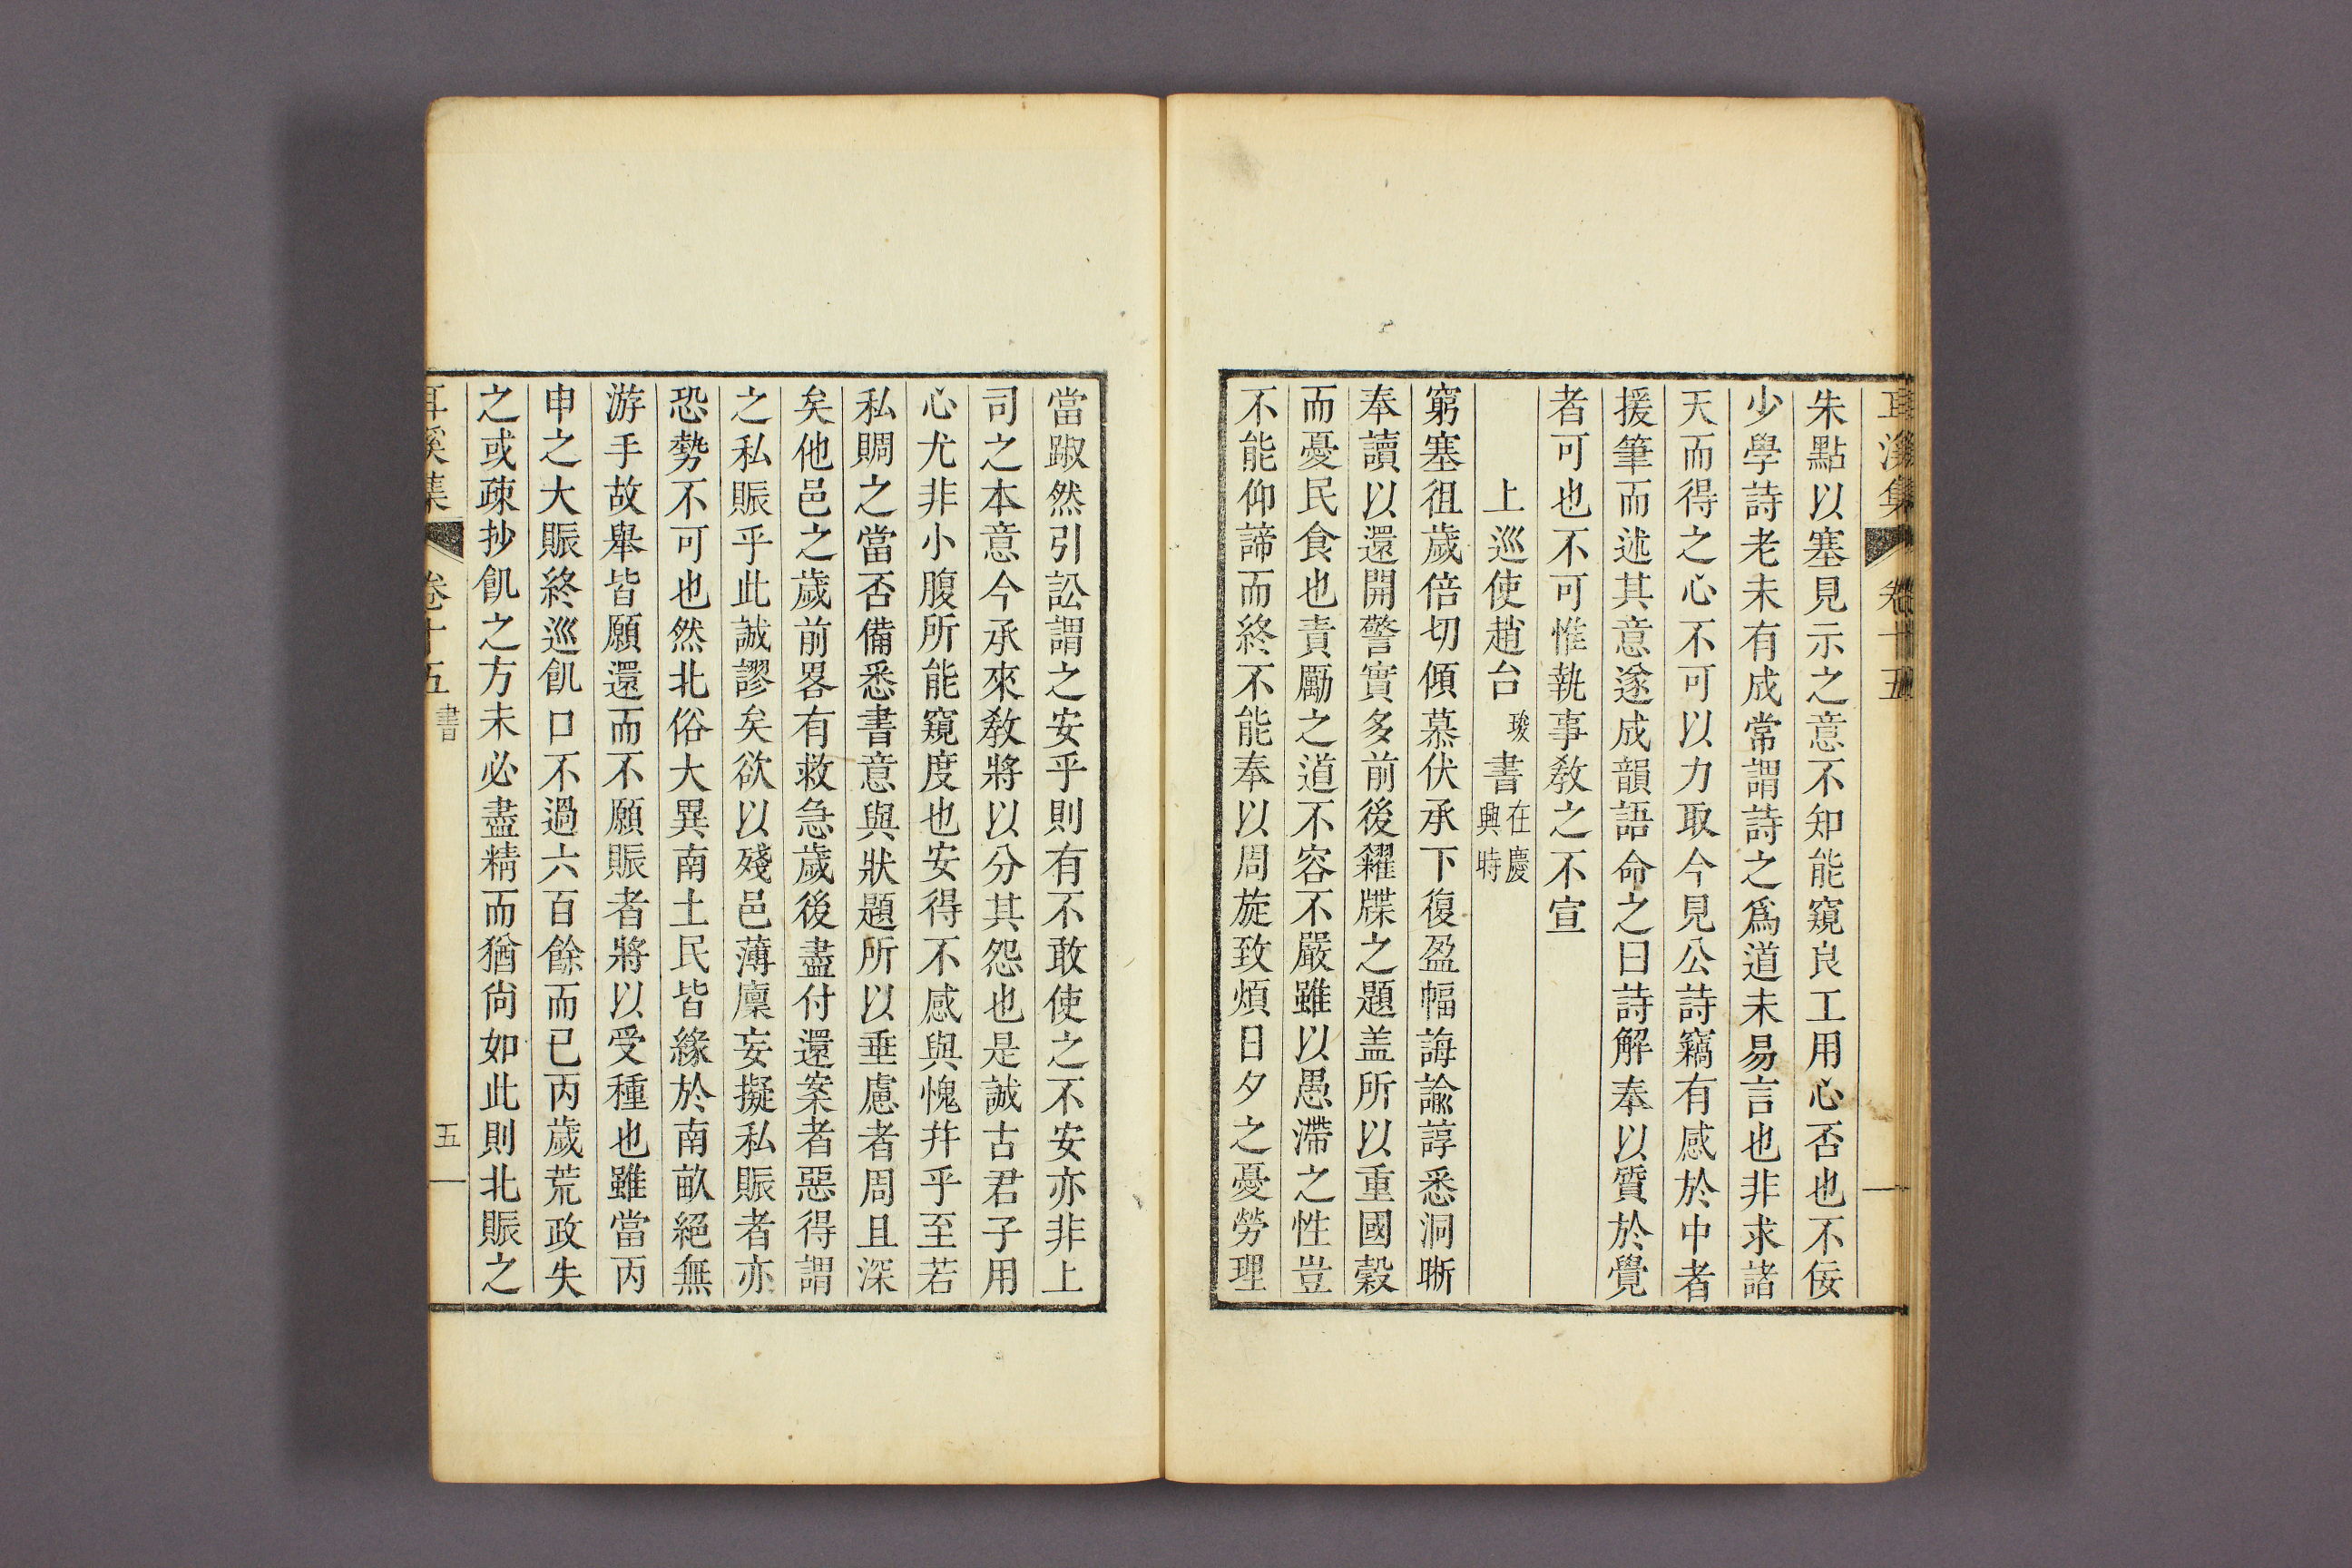 耳溪集 卷十五
朱點以塞見示之意不知能窺良工用心否也不佞
少學詩老未有成常謂詩之爲道未易言也非求諸
天而得之心不可以力取今見公詩竊有感於中者
援筆而述其意遂成韻語命之曰詩解奉以質於覺
者可也不可惟執事敎之不宣
上巡使趙台㻐書在慶興時
窮塞徂歲倍切傾慕伏承下復盈幅誨諭諄悉洞晣
奉讀以還開警實多前後糴牒之題盖所以重國糓
而憂民食也責勵之道不容不嚴雖以愚滯之性豈
不能仰諦而終不能奉以周旋致煩日夕之憂勞理
當踧然引訟謂之安乎則有不敢使之不安亦非上
司之本意今承來敎將以分其怨也是誠古君子用
心尤非小腹所能窺度也安得不感與愧幷乎至若
私賙之當否備悉書意與狀題所以垂慮者周且深
矣他邑之歲前畧有救急歲後盡付還案者惡得謂
之私賑乎此誠謬矣欲以殘邑薄廩妄擬私賑者亦
恐勢不可也然北俗大異南土民皆緣於南畝絕無
游手故舉皆願還而不願賑者將以受種也雖當丙
申之大賑終巡飢口不過六百餘而已丙歲荒政失
之或疎抄飢之方未必盡精而猶尙如此則北賑之
耳溪集 卷十五 書 五